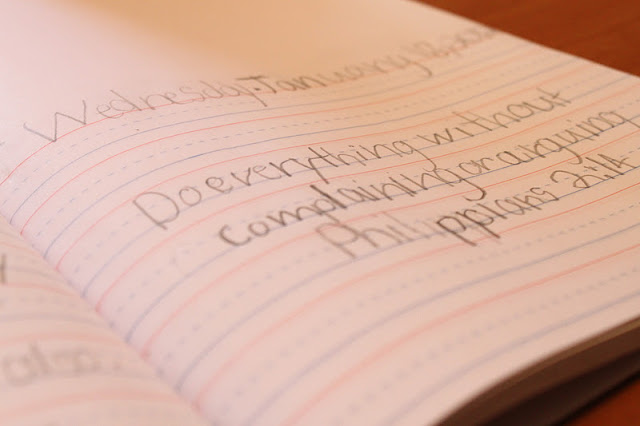 Wednesday, January 18,
Do everything without
complaining or arguing
Philippians 2:14
also.